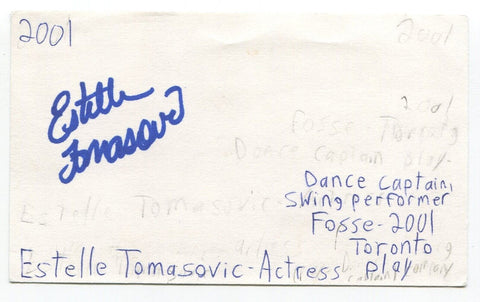 2001
2001
Estelle
Tomasovic
2001
Fosse - Touring
Dance captain play-
Dance captain,
swing performer
Fosse-2001
Toronto
play
Estelle Tomasovic-
Estelle Tomasovic-Actress